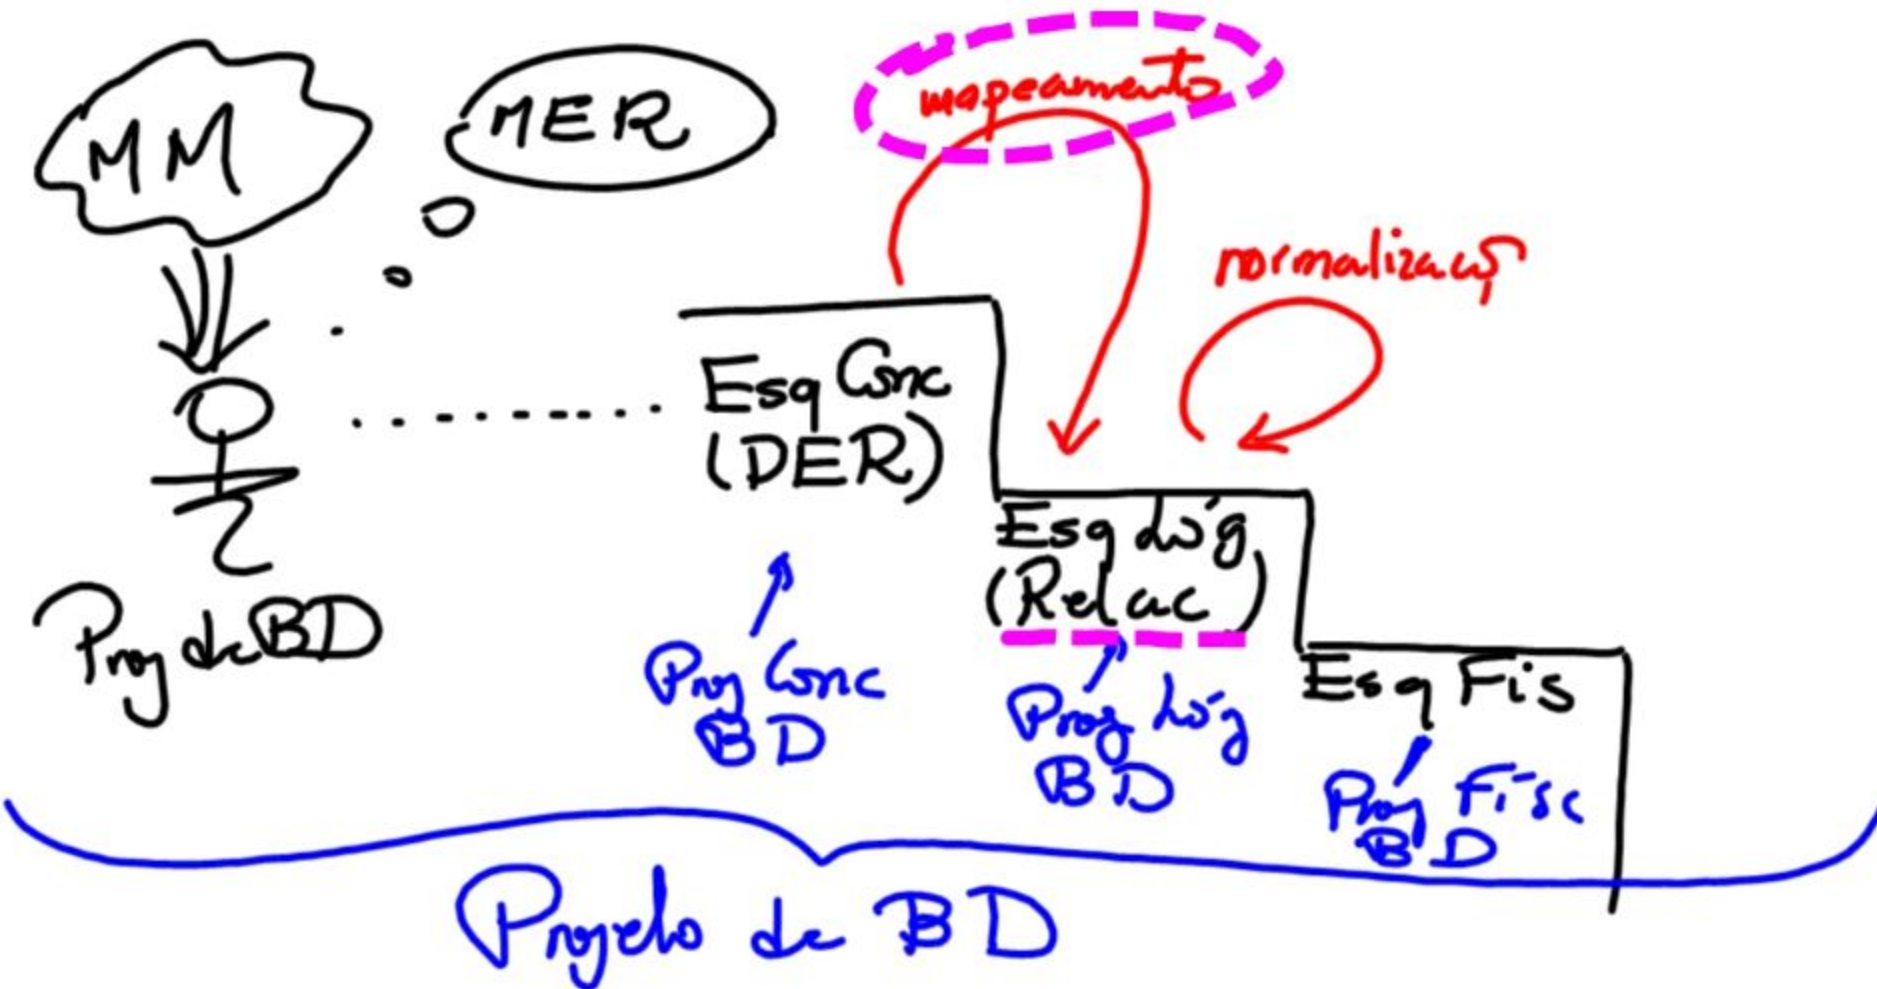 MM
MER
mapeamento
normalizaç
Esq Conc
(DER)
Esq Lóg
(Relac)
Esq Fís
Proj de BD
Proj Conc
BD
Proj Lóg
BD
Proj Físc
BD
Projeto de BD